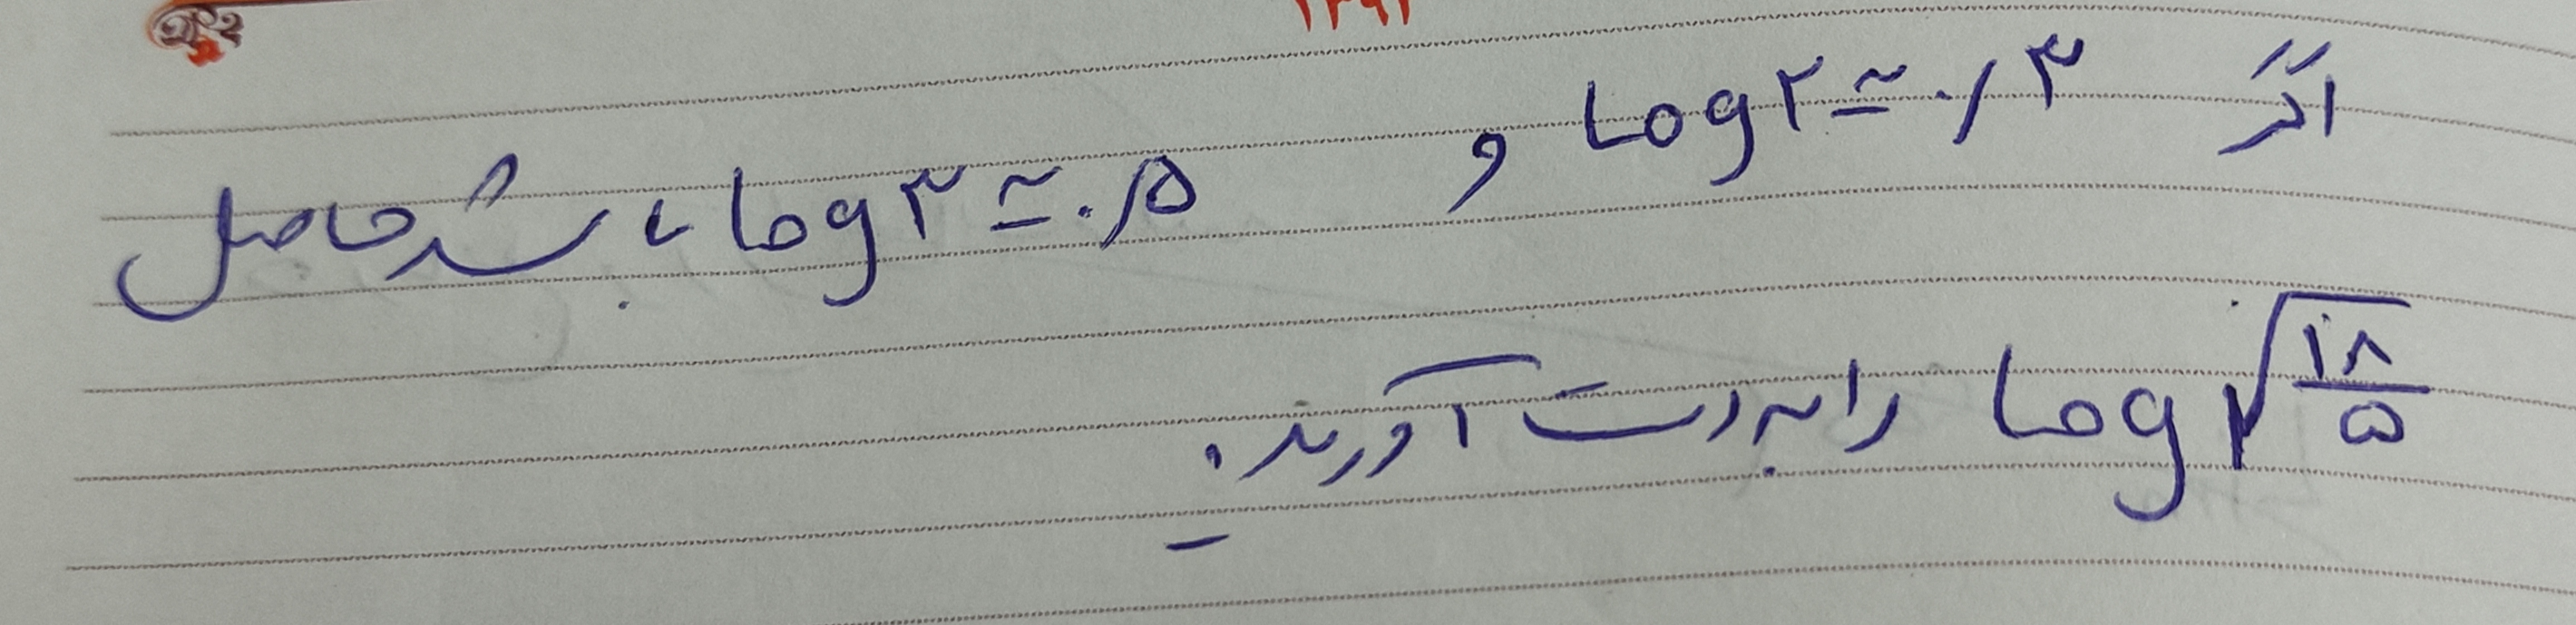 اگر Log۲ ≃ ۰/۳ و
Log۳ ≃ ۰/۵ باشد حاصل
Log √۱۸/۵ را به دست آورید.